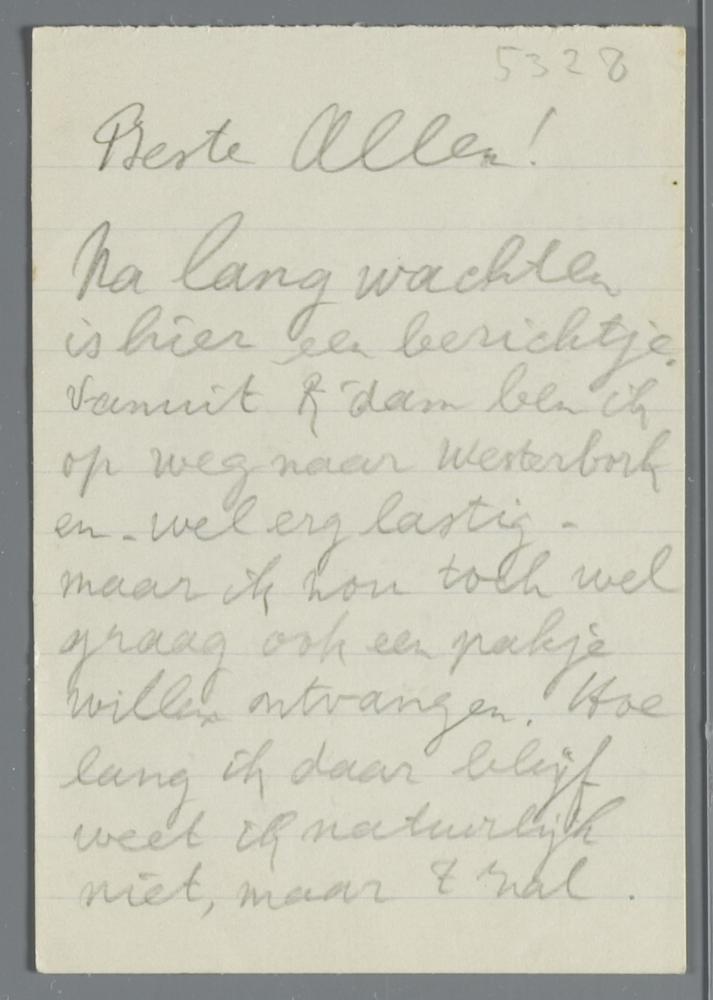 5328
Beste Allen!
Na lang wachten
is hier een berichtje.
Vanuit R'dam ben ik
op weg naar Westerbork
en - wel erg lastig -
maar ik zou toch wel
graag ook een pakje
willen ontvangen. Hoe
lang ik daar blijf
weet ik natuurlijk
niet, maar 't zal.